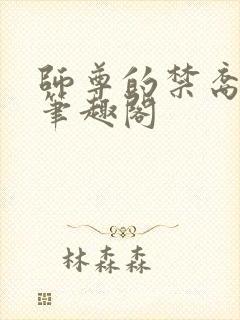 師尊的禁裔
筆趣閣
林森森